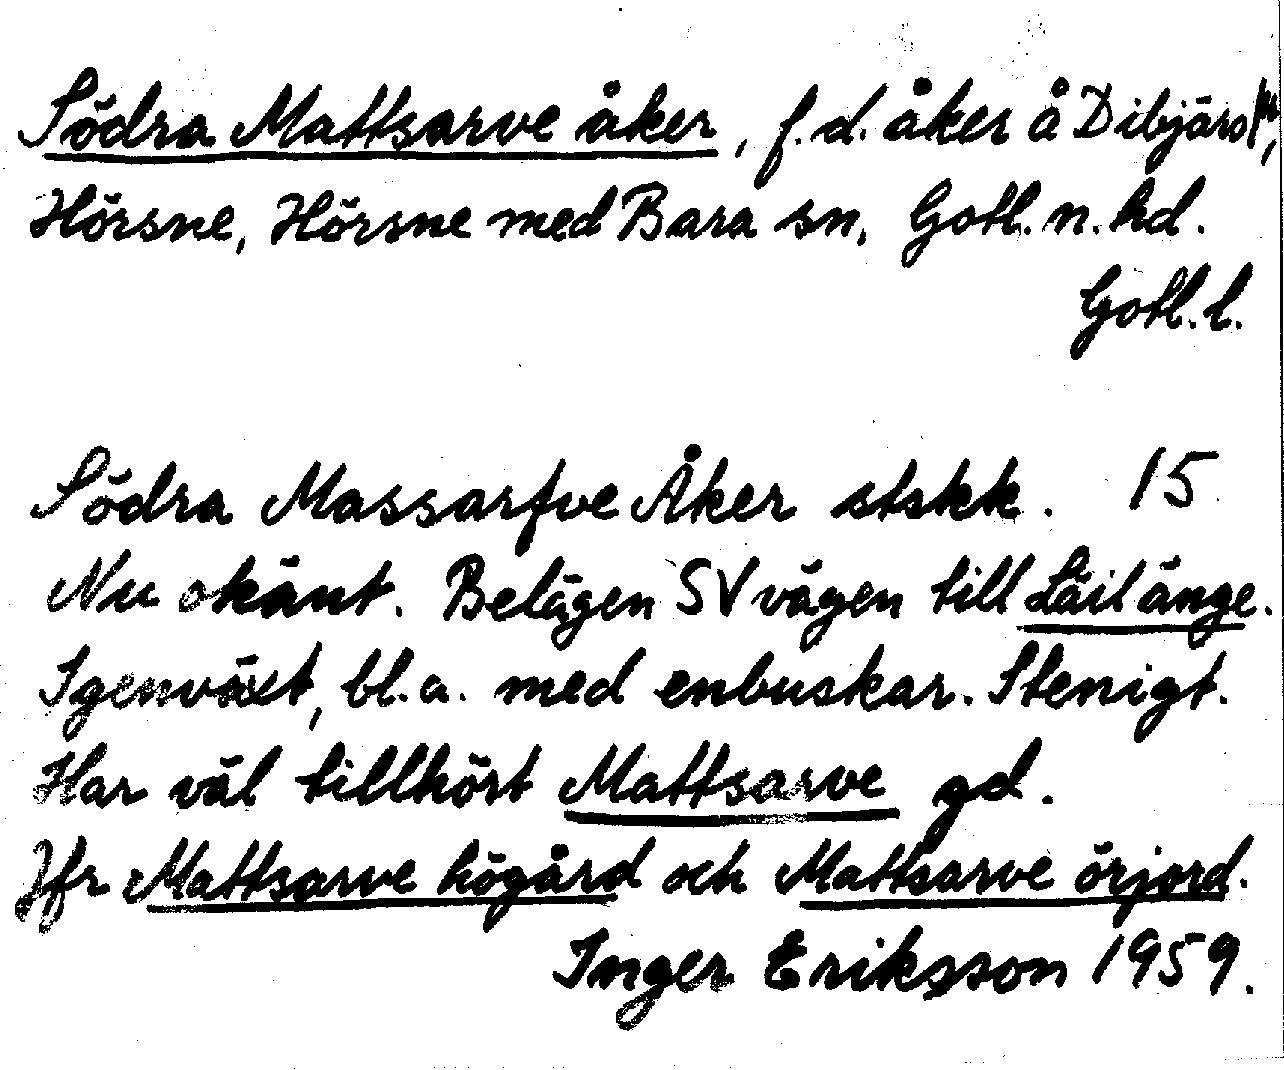 Södra Mattsarve åker, f.d. åker å Dibjärs
Hörsne, Hörsne med Bara sn, Gotl. n. hd.
Gotl. l.
Södra Massarfve Åker stskk. 15
Nu okänt. Belägen SV vägen till Läilänge.
Igenväxt, bl.a. med enbuskar. Stenigt.
Har väl tillhört Mattsarve gd.
Jfr Mattsarve högård och Mattsarve örjord.
Inger Eriksson 1959.